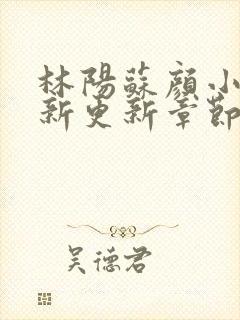 林陽蘇顏小
新更新章節
吴德君